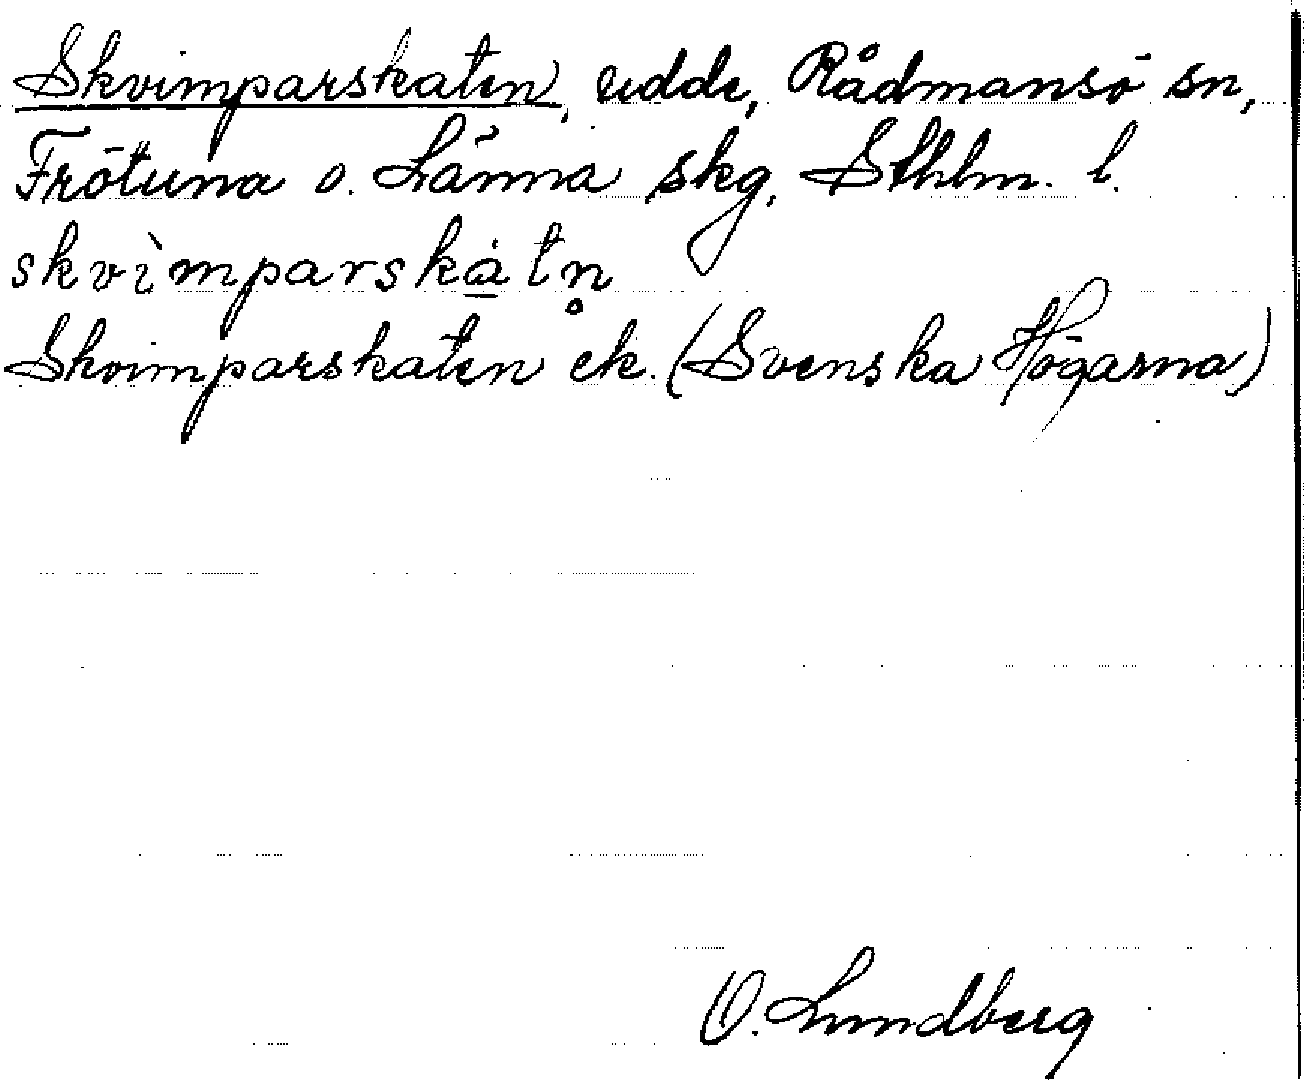 Skvimparskaten, udde, Rådmansö sn,
Frötuna o. Länna skg, Sthlm. l.
skvìmparskȧ̱tn̥
Skvimparskaten ek. (Svenska Högarna)
O. Lundberg